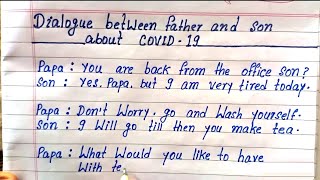 Dialogue between father and son
about COVID-19
Papa : You are back from the office son?
Son : Yes, Papa, but I am very tired today.
Papa : Don't Worry. go and Wash yourself.
Son : I Will go till then you make tea.
Papa : What Would you like to have
With te